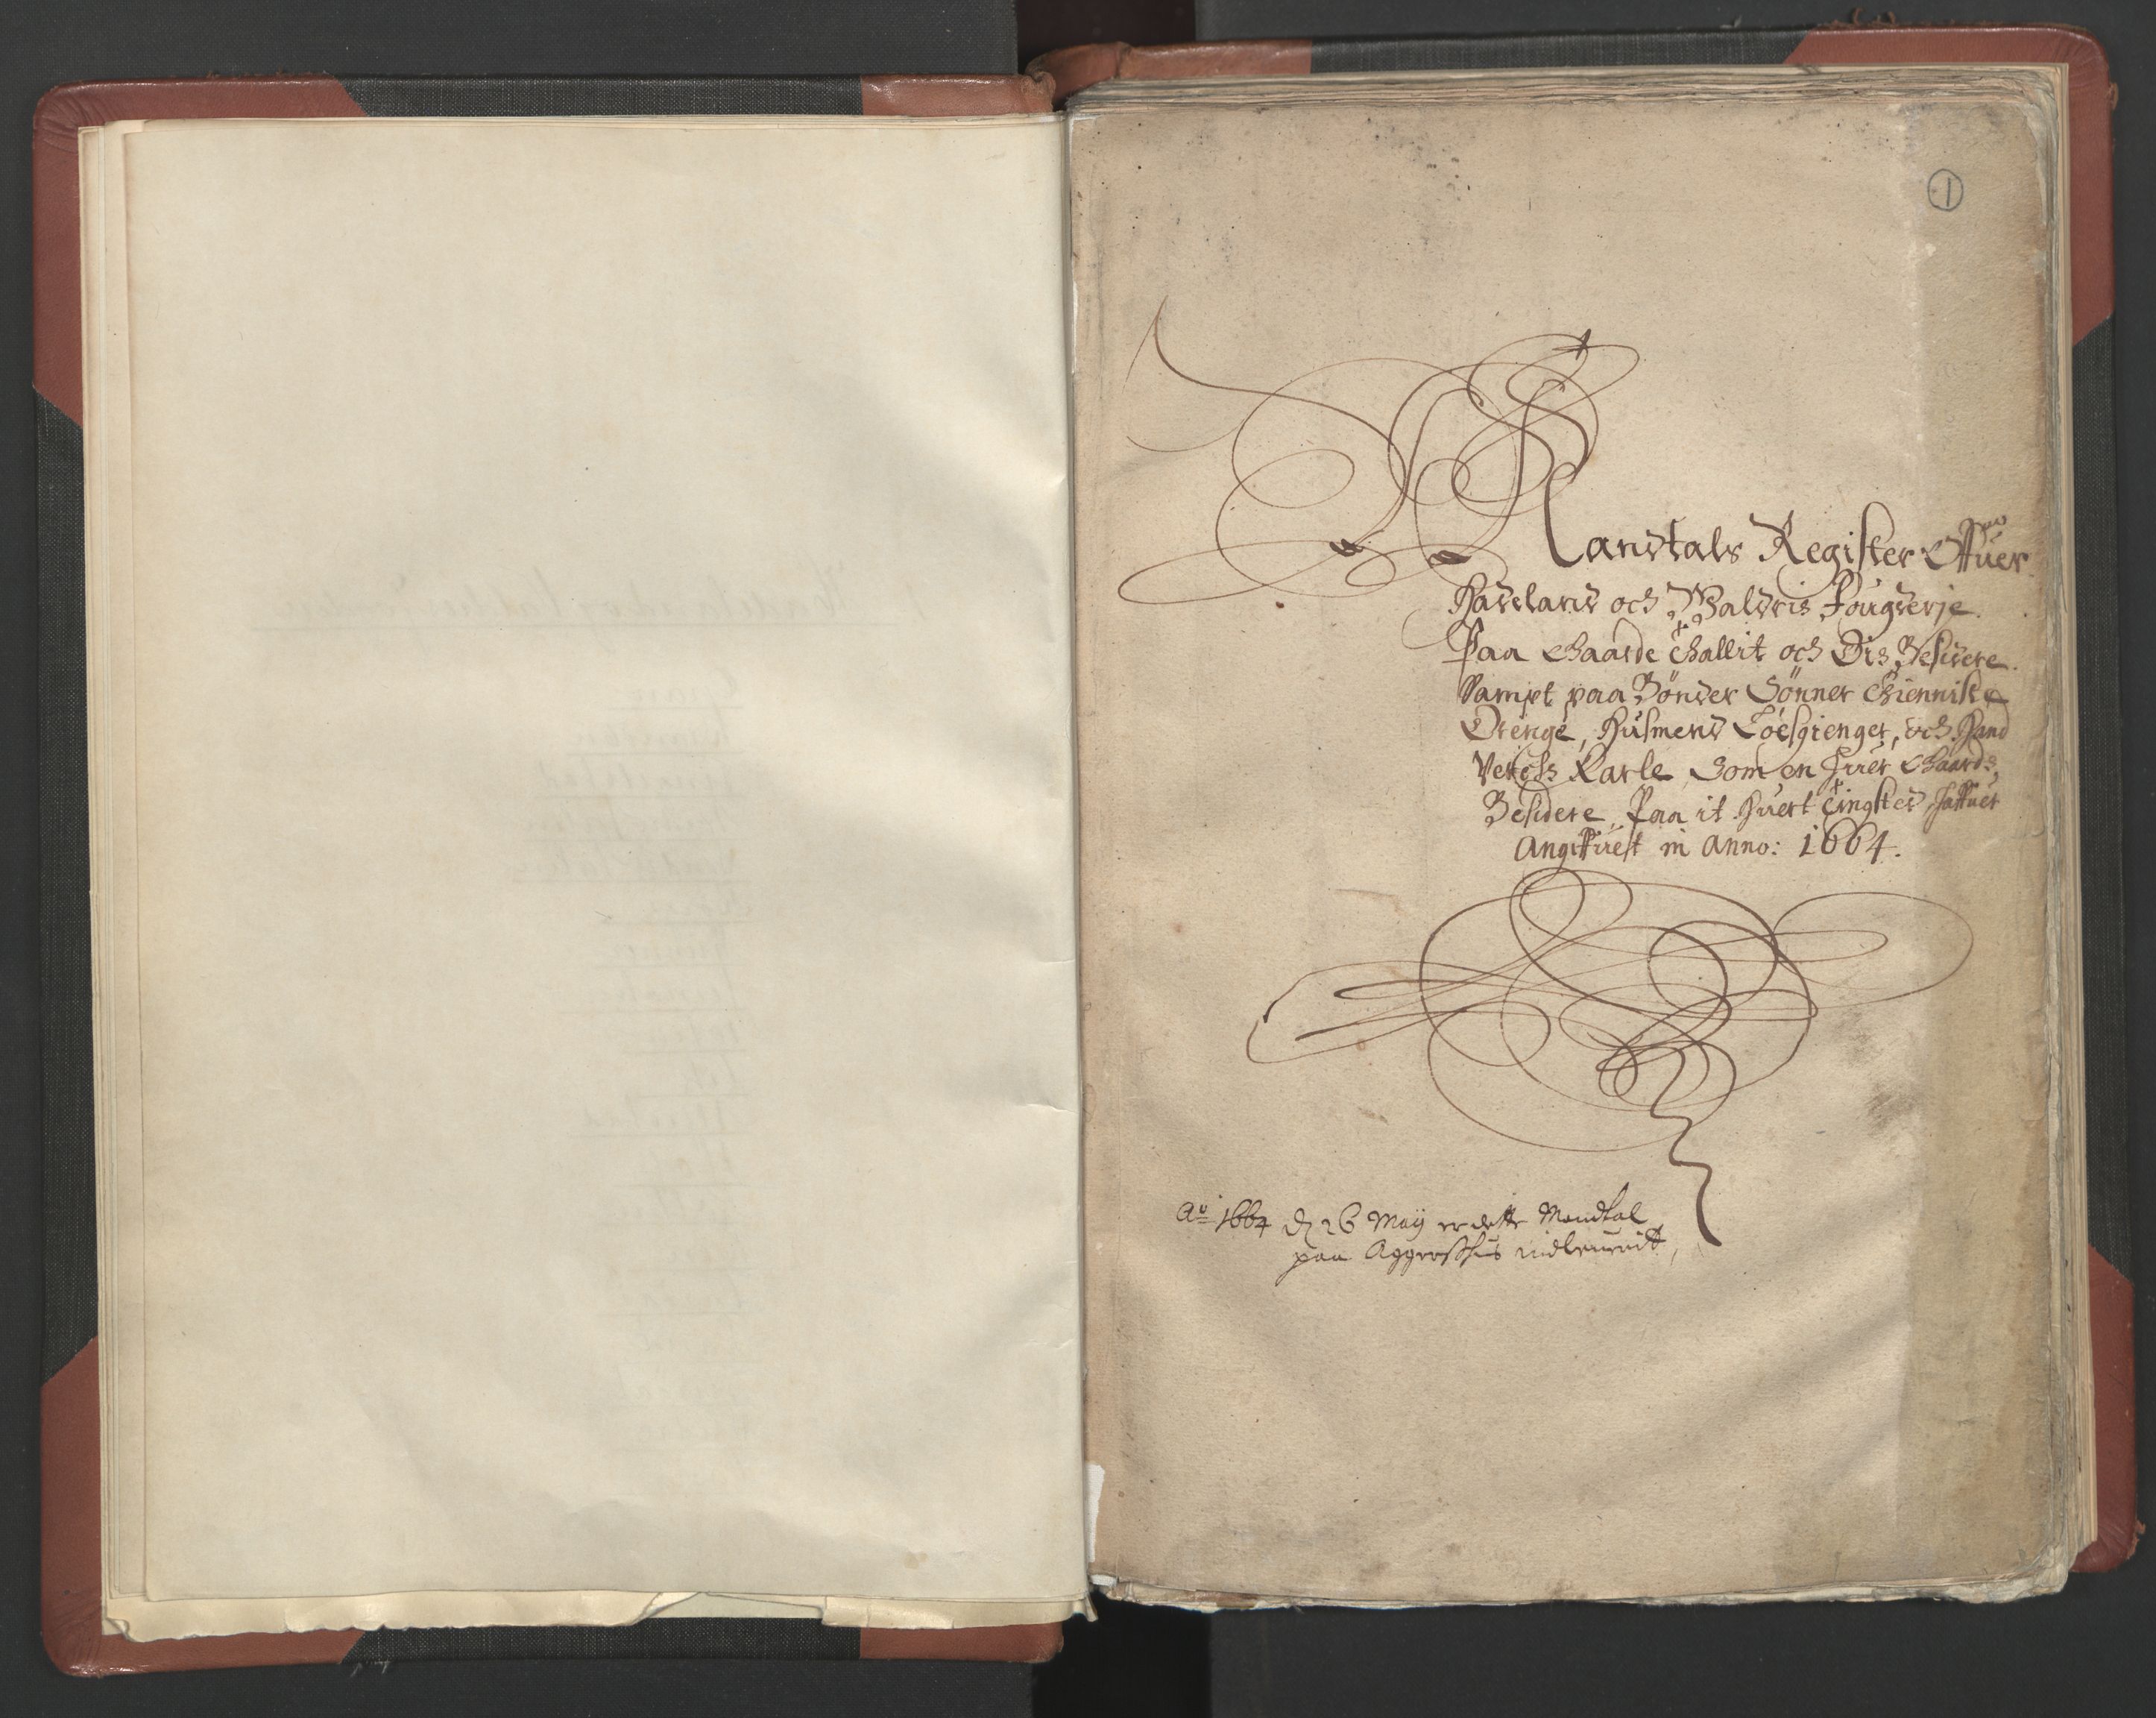 1
Mandtals Register Offuer
Hadelands och Waldris Fougderje
Paa Gaarde Thallit och Dis Besidere
Sampt paa Bönder Sönner Thienniste
Drenge, Husmend Löesgienger, och Hand
Vercks Karle, Som en huer Gaards,
Besidere, Paa it huert Tingsted haffuer
Angiffuest in Anno: 1664.
Ao 1664 d 26 Maij er dette Mandtal
paa Aggershus indleuerit,